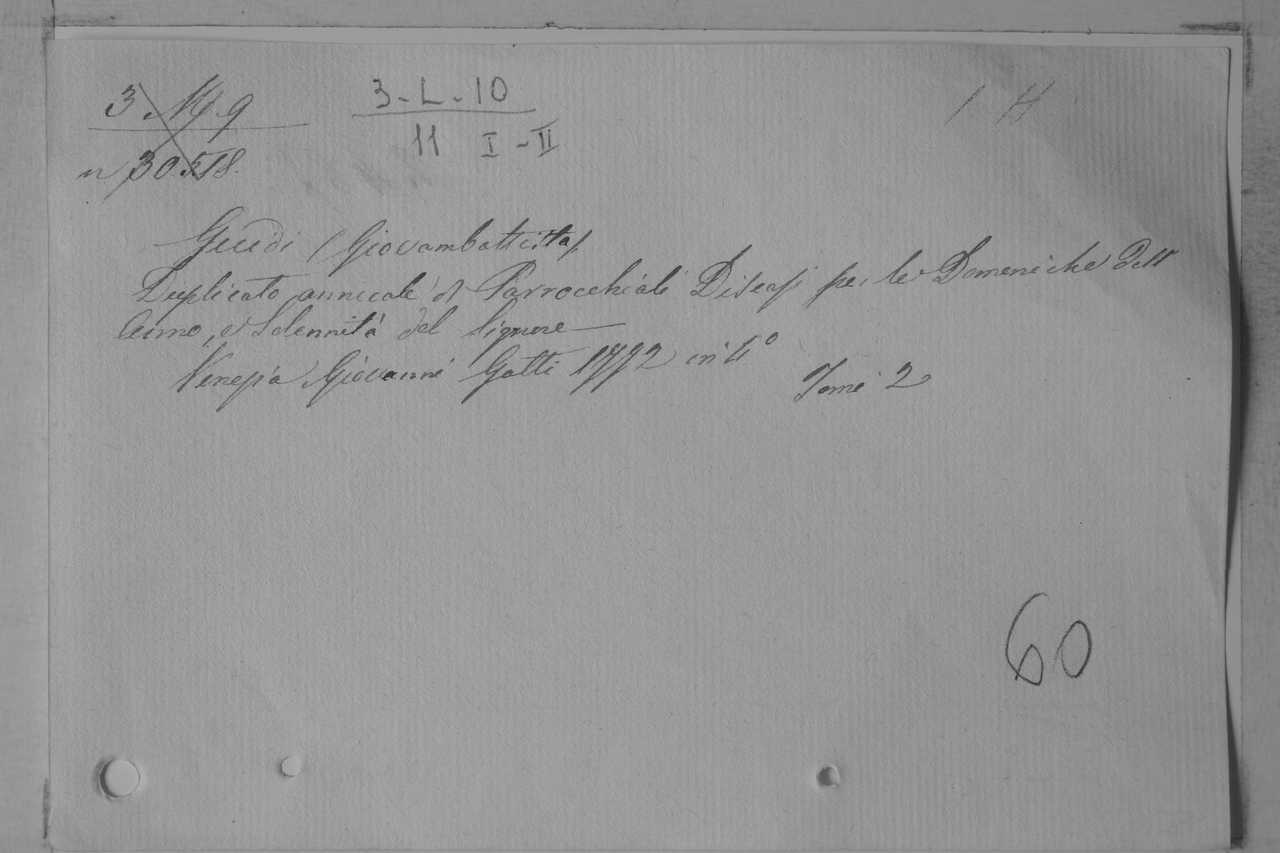 3. M. 9
n 30518.
3-L-10
11 I-II
Guidi (Giovambattista)
Duplicato annuale di Parrocchiali Discorsi per le Domeniche dell'
Anno, e Solennità del Signore
Venezia Giovanni Gatti 1792 in 4°
Tomi 2
60